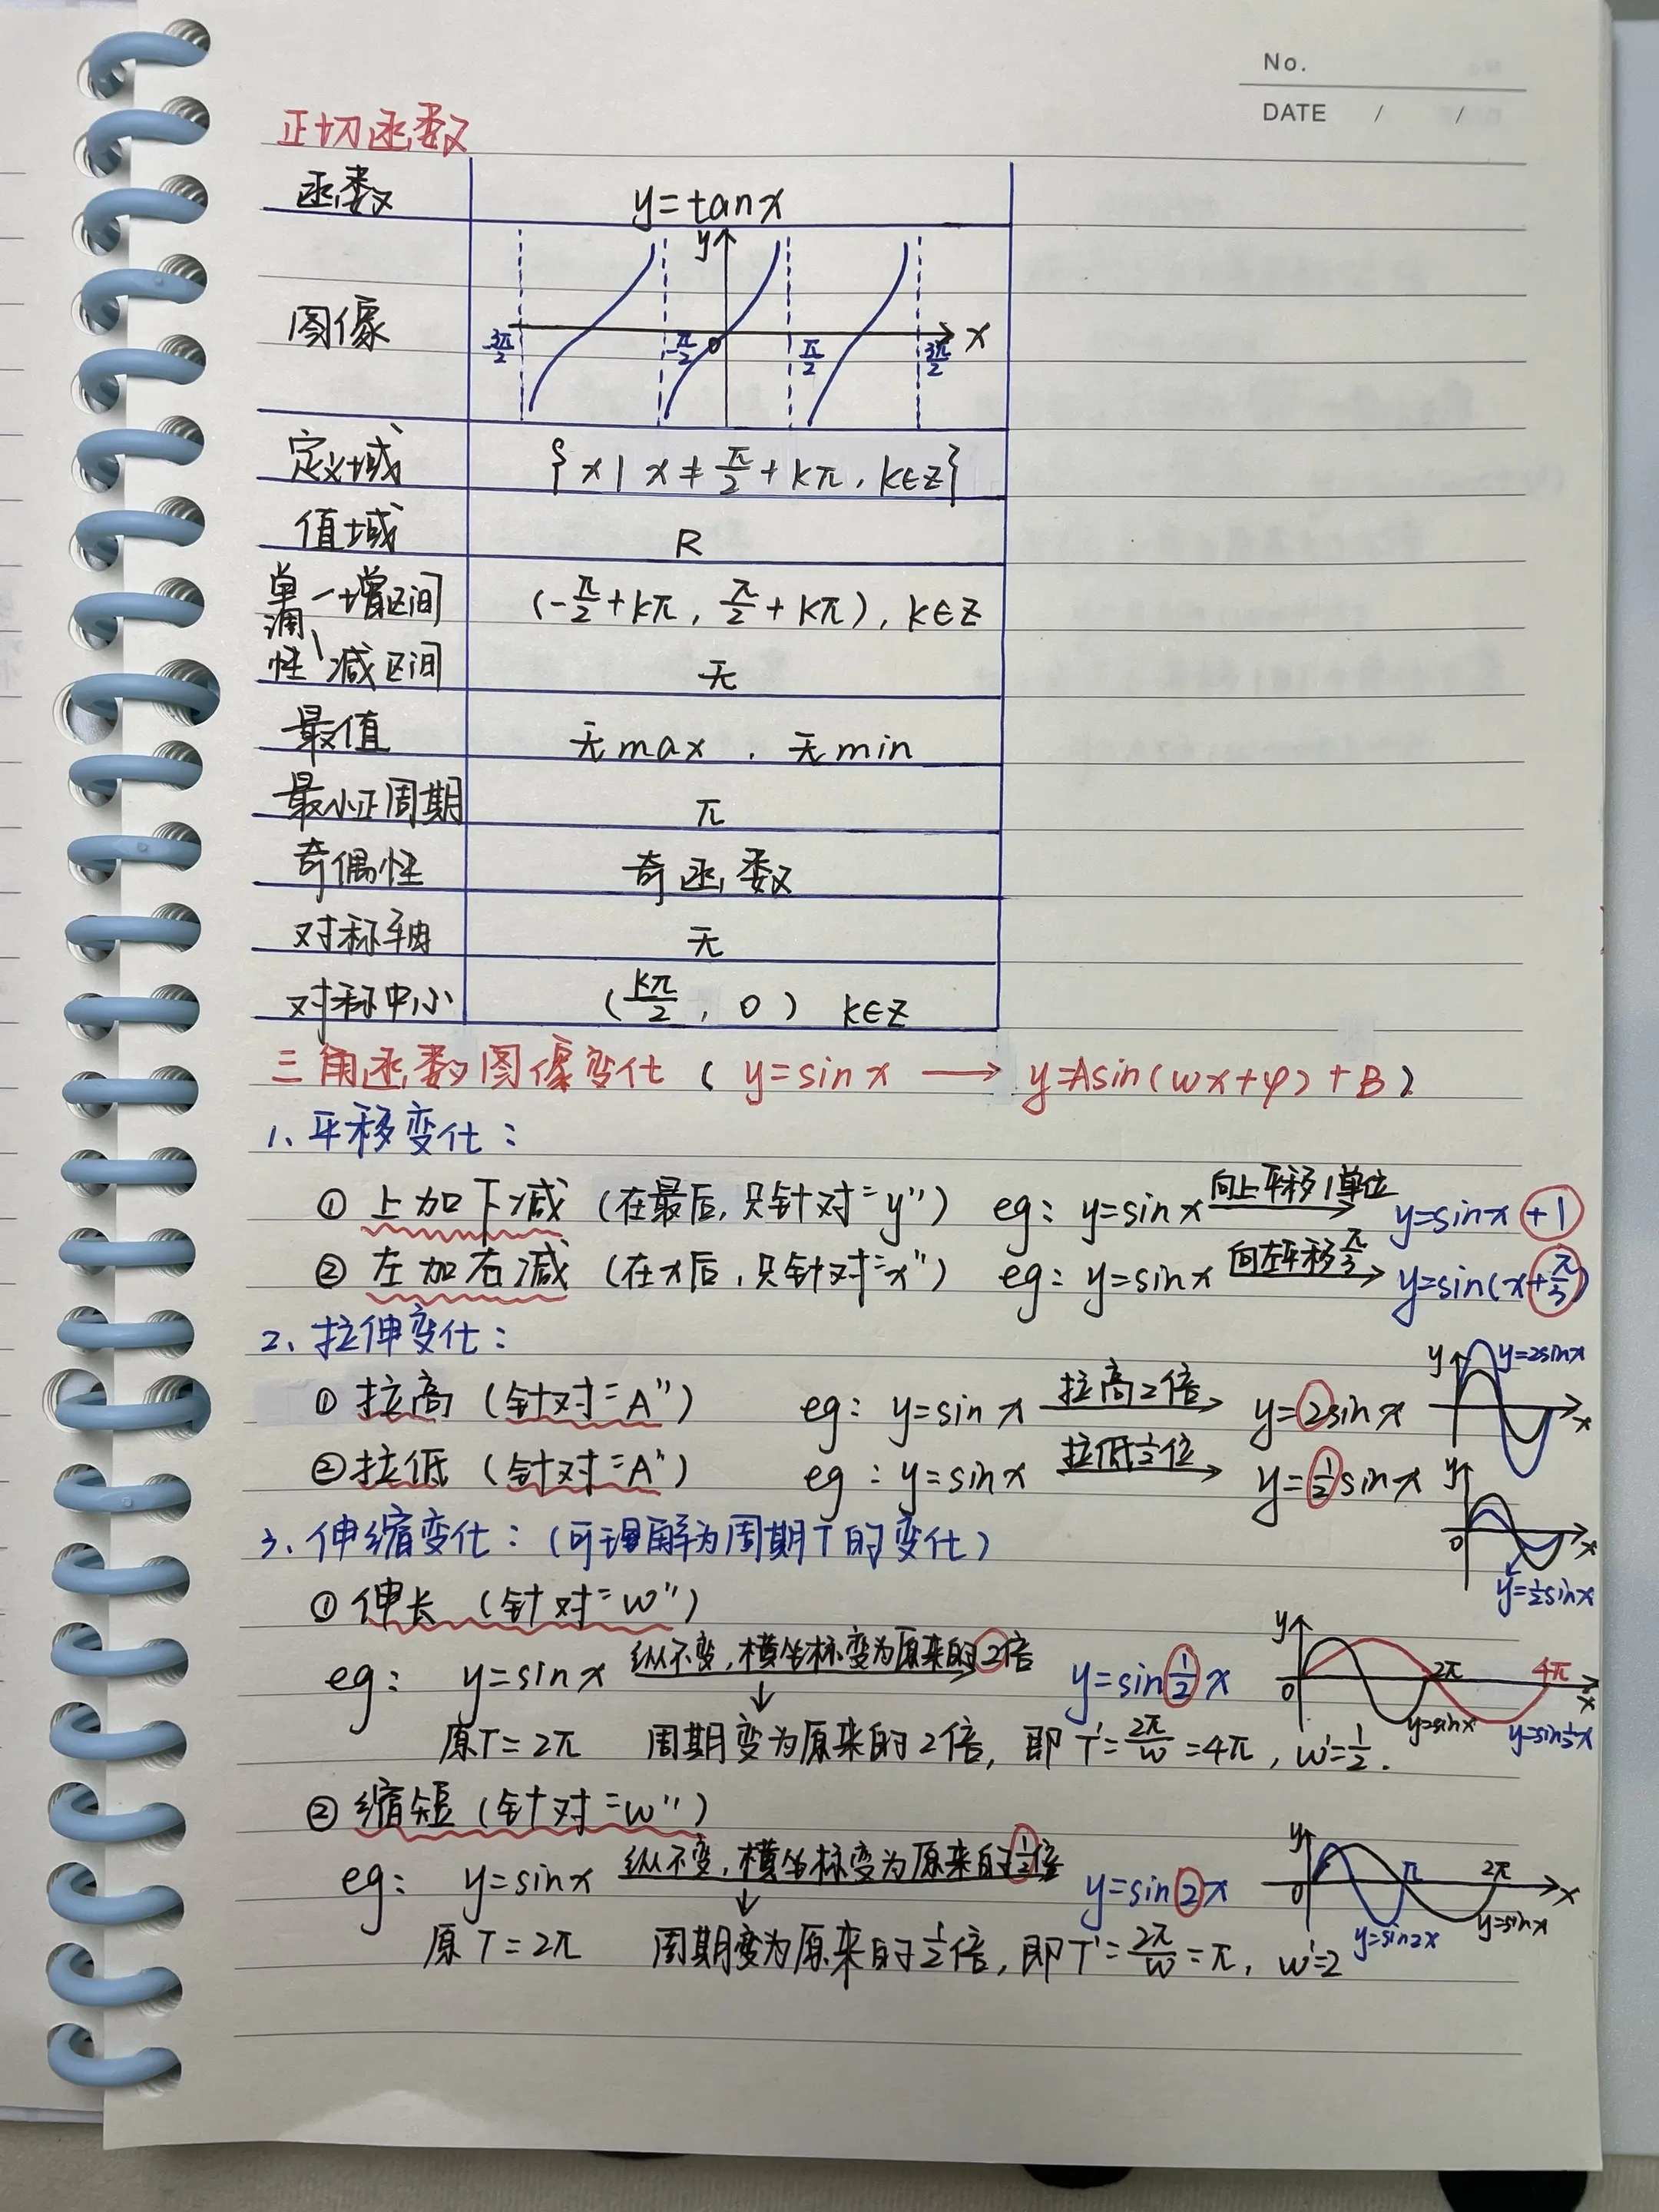 No.
DATE / /
正切函数
函数 y=tanx
图像 y x 0 -3π/2 -π/2 π/2 3π/2
定义域 {x|x≠π/2+kπ,k∈Z}
值域 R
单调性 增区间 (-π/2+kπ,π/2+kπ),k∈Z
减区间 无
最值 无max,无min
最小正周期 π
奇偶性 奇函数
对称轴 无
对称中心 (kπ/2,0) k∈Z
三角函数图像变化(y=sinx → y=Asin(wx+φ)+B)
1、平移变化:
① 上加下减(在最后,只针对"y") eg: y=sinx 向上平移1单位→ y=sinx+1
② 左加右减(在x后,只针对"x") eg: y=sinx 向左平移π/3→ y=sin(x+π/3)
2、拉伸变化:
① 拉高(针对"A") eg: y=sinx 拉高2倍→ y=2sinx
y y=2sinx x
② 拉低(针对"A") eg: y=sinx 拉低1/2位→ y=1/2sinx
y 0 x y=1/2sinx
3、伸缩变化:(可理解为周期T的变化)
① 伸长(针对"w")
eg: y=sinx 纵不变,横坐标变为原来的2倍→ y=sin1/2x
y 0 2π 4π x y=sinx y=sin1/2x
原T=2π 周期变为原来的2倍,即T'=2π/w=4π,w'=1/2.
② 缩短(针对"w")
eg: y=sinx 纵不变,横坐标变为原来的1/2倍 y=sin2x
y 0 π 2π x y=sin2x y=sinx
原T=2π 周期变为原来的1/2倍,即T'=2π/w=π,w'=2